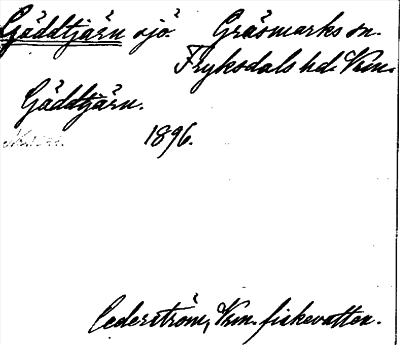 Gäddtjärn sjö Gräsmarks sn.
Fryksdals hd. Vrm.
Gäddtjärn.
1896.
Cederström, Vrm. fiskevatten.